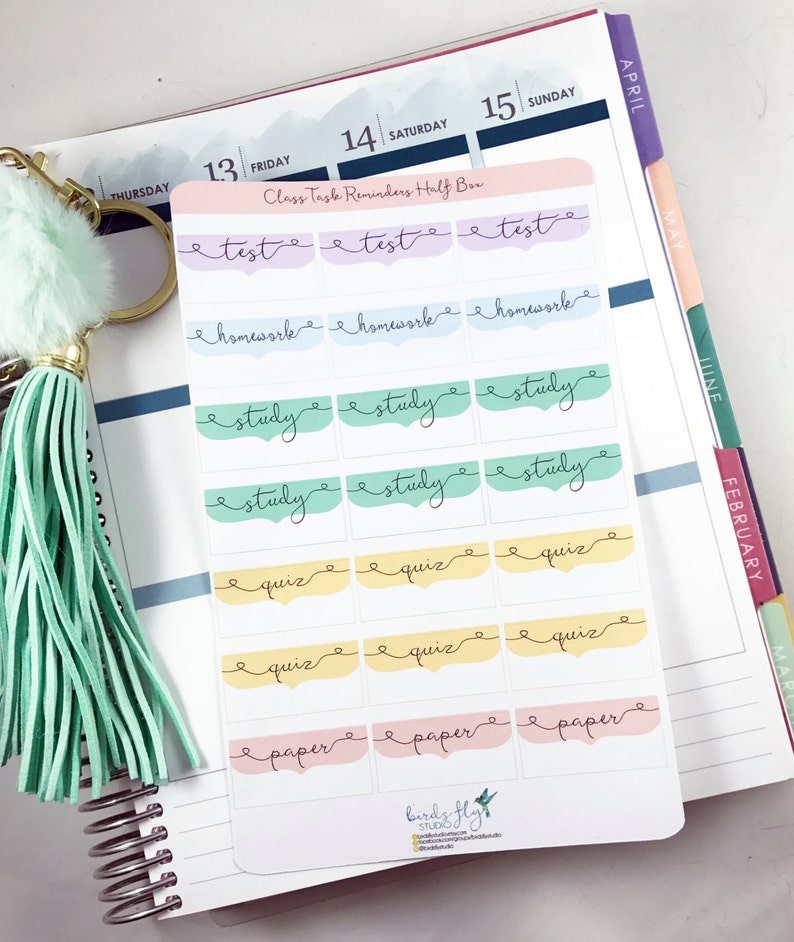 THURSDAY
13 FRIDAY
14 SATURDAY
15 SUNDAY
APRIL
MAY
JUNE
FEBRUARY
MARCH
Class Task Reminders Half Box
test test test
homework homework homework
study study study
study study study
quiz quiz quiz
quiz quiz quiz
paper paper paper
birds fly
STUDIO
birdsflystudio.etsy.com
facebook.com/groups/birdsflystudio
@birdsflystudio